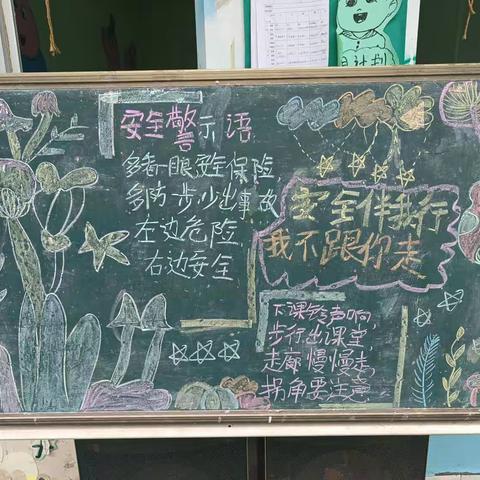 日计划
安全警示语
多看一眼安全保险
多防一步,少出事故
左边危险
右边安全
安全伴我行
我不跟你走
下课铃声响,
步行出课室,
走廊慢慢走,
拐角要注意